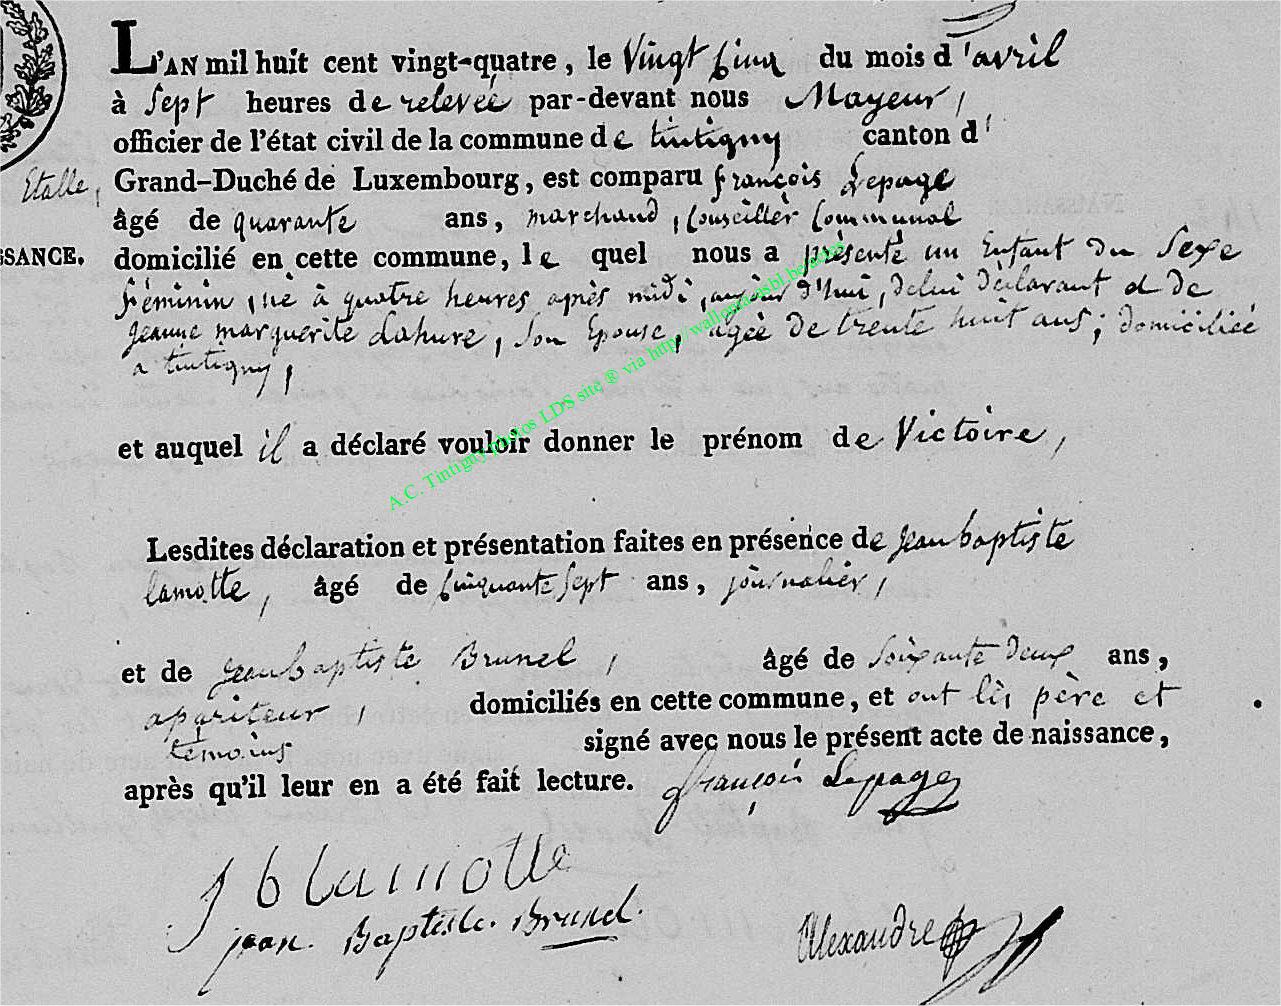 L'AN mil huit cent vingt-quatre, le Vingt Cinq du mois d'avril
à Sept heures de relevée par-devant nous Mayeur,
officier de l'état civil de la commune de tintigny canton d'
Etalle, Grand-Duché de Luxembourg, est comparu françois Lepage
âgé de quarante ans, marchand, Conseiller Communal
SSANCE. domicilié en cette commune, le quel nous a présenté un Enfant du Sexe
féminin, né à quatre heures après midi, aujour d'hui, delui déclarant et de
jeanne marguerite Lahure, Son Epouse, agée de trente huit ans; domiciliée
a tintigny,
et auquel il a déclaré vouloir donner le prénom de Victoire,
A.C. Tintigny photos LDS site ® via http://wallonia-asbl.be
Lesdites déclaration et présentation faites en présence de jean baptiste
lamotte, âgé de Cinquante Sept ans, journalier,
et de jean baptiste Brunel, âgé de Soixante Deux ans,
apariteur, domiciliés en cette commune, et ont lès père et
témoins signé avec nous le présent acte de naissance,
après qu'il leur en a été fait lecture. françois Lepage
J b lamotte
jean Baptiste Brunel.
Alexandre